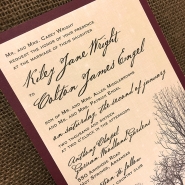 MR. AND MRS. CASEY WRIGHT
REQUEST THE HONOR OF YOUR PRESENCE
AT THE MARRIAGE OF THEIR DAUGHTER
Kiley Jane Wright
TO
Colton James Engel
SON OF MR. AND MRS. ALLEN
AND MR. AND MRS. PATRICK ENGEL
on saturday, the second of january
TWO THOUSAND
AT TWO O'CLOCK IN THE AFTERNOON
Anthony Chapel
Garvan Woodland Gardens
550 ARKRIDGE ROAD
HOT SPRINGS, ARKANSAS
to follow